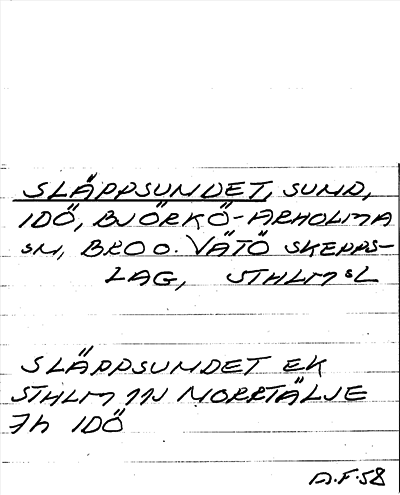 SLÄPPSUNDET, SUND,
IDÖ, BJÖRKÖ-ARHOLMA
SN, BRO O. VÄTÖ SKEPPS-
LAG, STHLMSL
SLÄPPSUNDET EK
STHLM 11J NORRTÄLJE
7h IDÖ
A.F.58